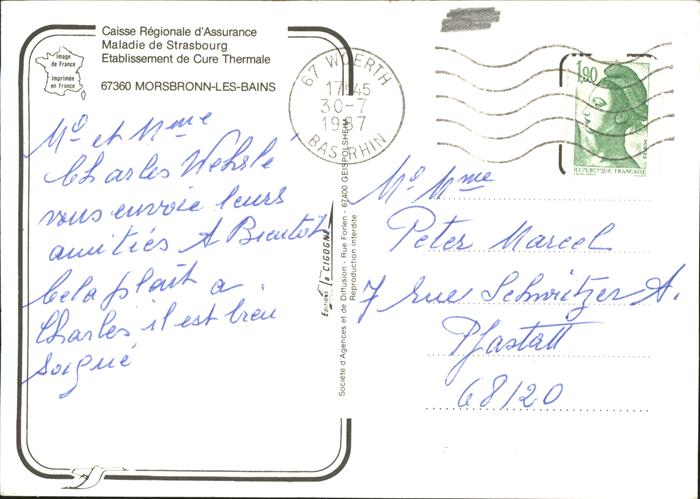 Caisse Régionale d'Assurance
Maladie de Strasbourg
Etablissement de Cure Thermale
67360 MORSBRONN-LES-BAINS
Image
de France
Imprimée
en France
Mr et Mme
Charles Wehrlé
vous envoie leurs
amitiés A Bientot
Cela plait a
Charles il est bien
soigné
Editions la CIGOGNE
Société d'Agences et de Diffusion - Rue Forlen - 67400 GEISPOLSHEIM
Reproduction interdite
67 WOERTH
17H45
30-7
1987
BAS-RHIN
1,90
POSTES
REPUBLIQUE FRANÇAISE
Mr Mme
Peter Marcel
7 rue Schweitzer A.
Pfastatt
68120